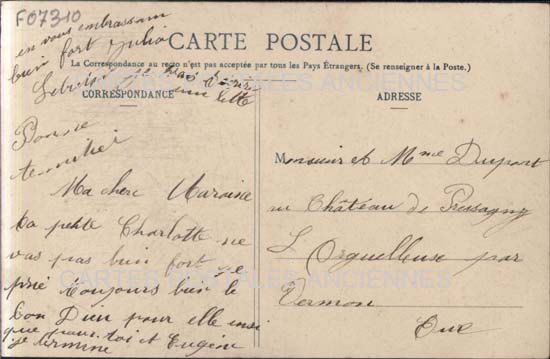 F07310
en vous embrassan
bien fort Julia
CARTE POSTALE
La Correspondance au recto n'est pas acceptée par tous les Pays Étrangers. (Se renseigner à la Poste.)
CORRESPONDANCE
ADRESSE
CARTES POSTALES ANCIENNES
lette
Ma chere
ta petite Charlotte ne
vas pas bien fort
prié toujours bien le
bon Dieu pour elle insi
que pour toi et Eugène
je termine
Monsieur et Mme Dupart
au Château de Pressagny
L'Orguelleuse par
Vernon
Eure
CARTES POSTALES ANCIENNES